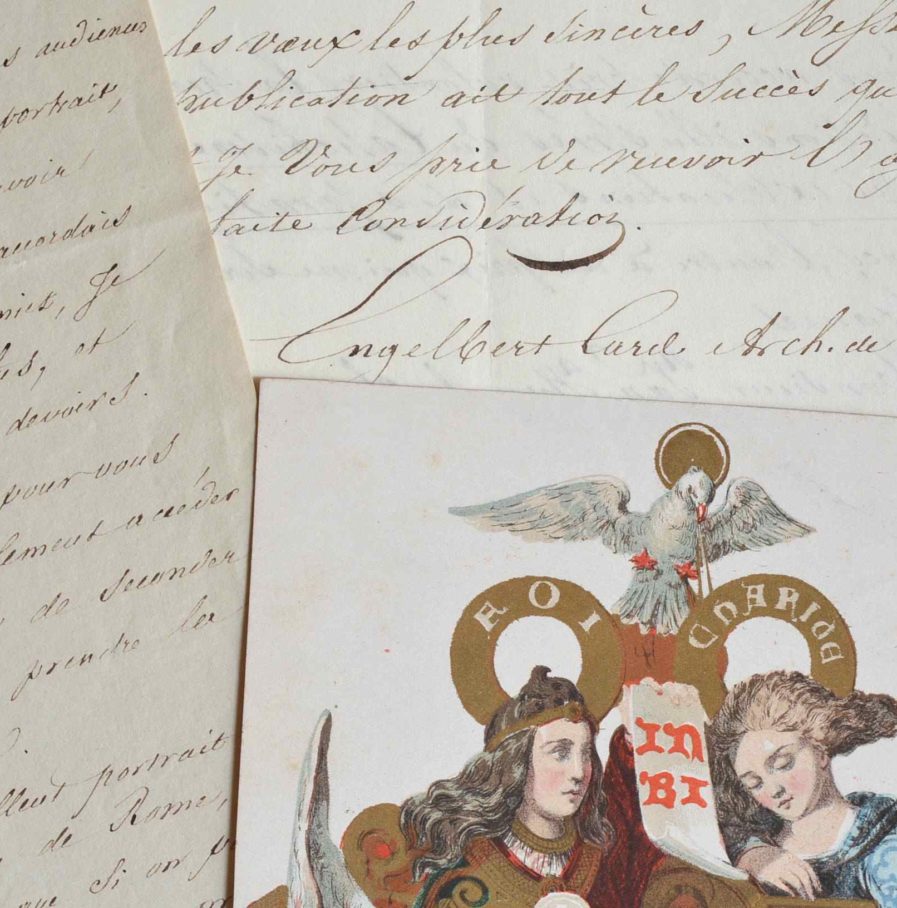 s audiences
portrait,
voir
accordais
mis, Je
ls, et
devoirs.
pour vous
lement accéder
de seconder
prendre les
llent portrait
de Rome,
que si on p
les vœux les plus sincères, Mess
publication ait tout le Succès qu
Je Vous prie de recevoir l'
faite Considération.
Engelbert Card Arch. de
FOI
CHARIDE
IN
BI